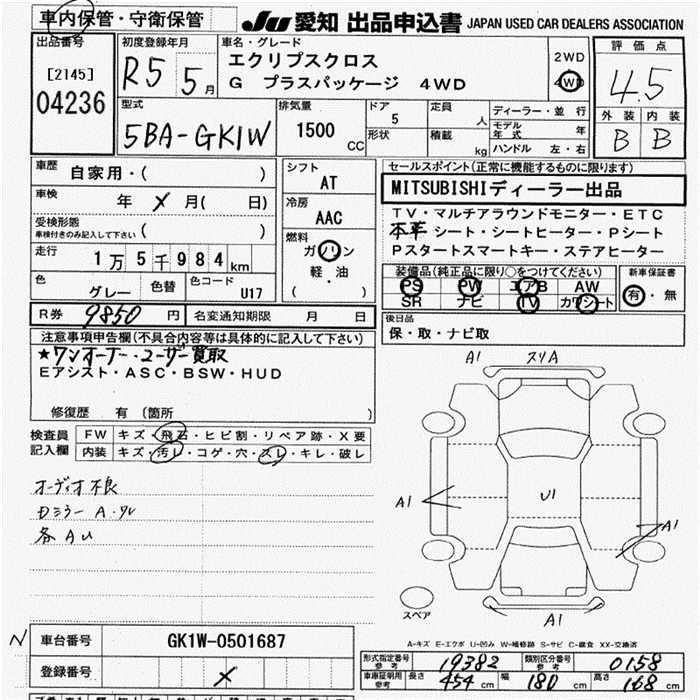 車内保管・守衛保管 JU 愛知 出品申込書 JAPAN USED CAR DEALERS ASSOCIATION
出品番号 初度登録年月 車名・グレード 評価点
[2145] R5 5月 エクリプスクロス 2WD
04236 G プラスパッケージ 4WD 4WD 4.5
型式 排気量 ドア 定員 ディーラー・並行 外装 内装
5BA-GK1W 1500 CC 5 人 モデル年式 年 B B
形状 積載 kg ハンドル 左・右
車歴 自家用・( ) シフト AT セールスポイント(正常に機能するものに限ります)
車検 年 メ 月( 日) 冷房 AAC MITSUBISHIディーラー出品
受検形態 TV・マルチアラウンドモニター・ETC
車検付きのみ記入して下さい ( ) 燃料 本革シート・シートヒーター・Pシート
走行 1万5千984km ガソリン Pスタートスマートキー・ステアヒーター
軽・油 装備品(純正品に限り○をつけてください) 新車保証書
色 グレー 色替 色コード U17 ( ) PS PW エアB AW 有・無
SR ナビ TV カワシート
R券 9850円 名変通知期限 月 日 後日品
注意事項申告欄(不具合内容等は具体的に記入して下さい) 保・取・ナビ取
★ワンオーナー・ユーザー買取
Eアシスト・ASC・BSW・HUD
修復歴 有 (箇所 )
検査員 FW キズ・飛石・ヒビ割・リペア跡・X要
記入欄 内装 キズ・汚レ・コゲ・穴・スレ・キレ・破レ
A1 スリA
オーディオ不良
Dミラー A・スレ
各 AU
A1 U1 A1
スペア A1
A-キズ E-エクボ U-凹み W-補修跡 S-サビ C-腐食 XX-交換済
N 車台番号 GK1W-0501687
登録番号 メ
形式指定番号 参考 19382 類別区分番号 参考 0158
車庫証明用 参考 長さ 454cm 幅 180cm 高さ 168cm